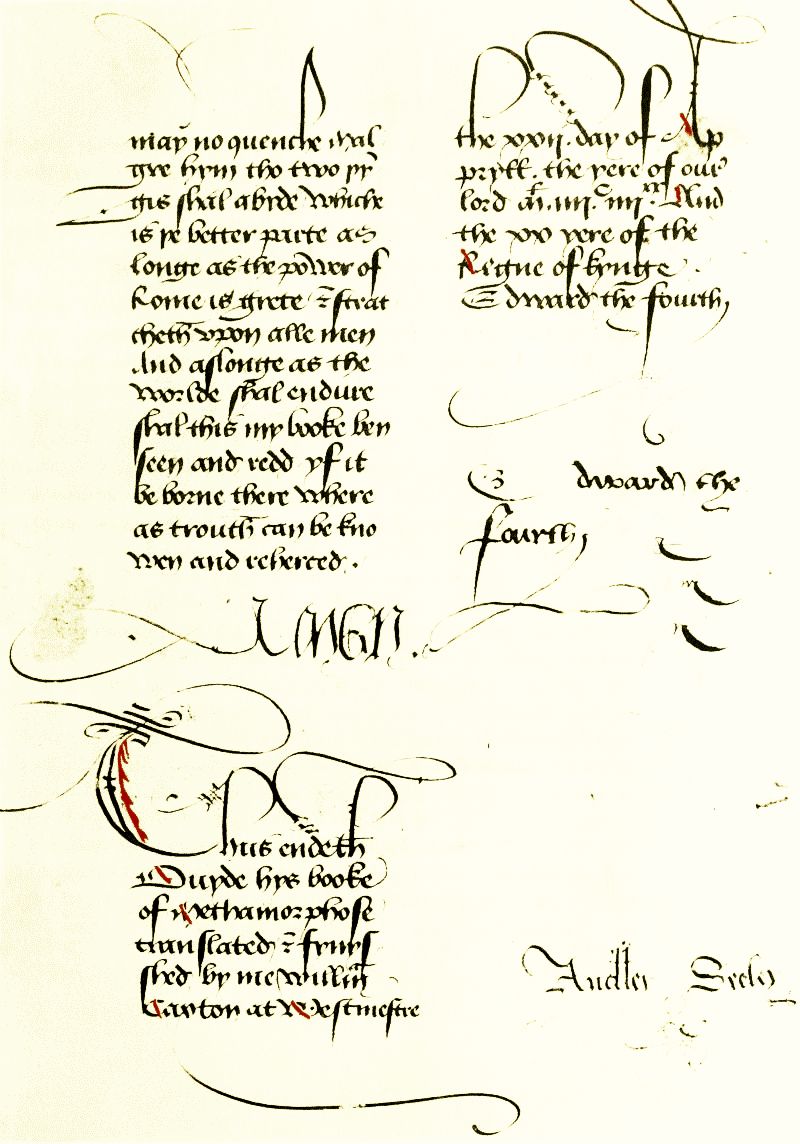 may no quenche mal
gre hym tho two py
gis shal abyde whiche
is ye better parte as
longe as the power of
Rome is grete ⁊ strat
cheth vpon alle men
And aslonge as the
worlde shal endure
shal this my booke ben
seen and redd yf it
be borne there where
as trouth can be kno
wen and reherced .
AMEN.
Thus endeth
Ouyde hys booke
of Methamorphose
translated ⁊ fynys
shed by me Willm̄
Caxton at Westmestre
the xxij. day of Ap
pryll. the yere of our
lord m. iiijc. iiijxx. And
the xx yere of the
Regne of kynge
Edward the fourth
Edward the
fourth